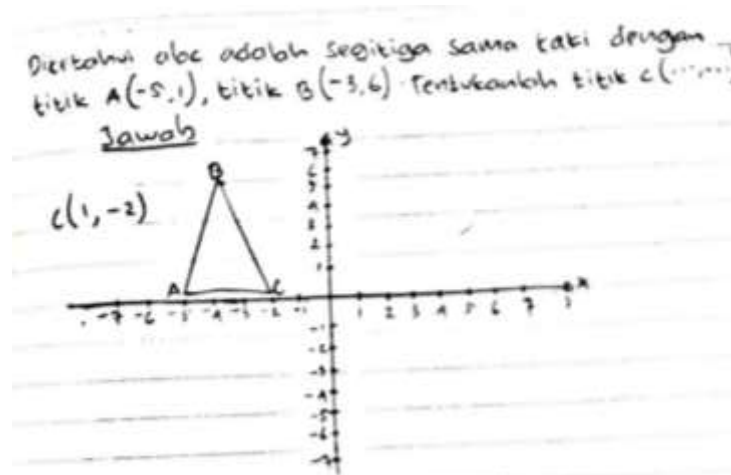 Diketahui abc adalah segitiga sama kaki dengan
titik A(-5,1), titik B(-3,6). Tentukanlah titik c(...,...
Jawab
C(1,-2)
y
7
6
5
4
3
2
1
B
A
C
x
-7 -6 -5 -4 -3 -2 -1 1 2 3 4 5 6 7
-1
-2
-3
-4
-5
-6
-7